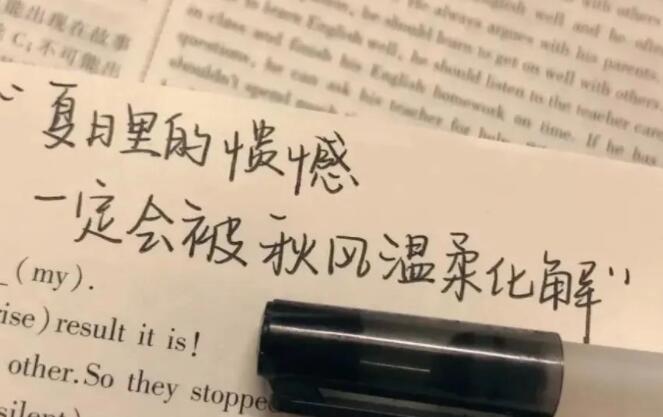 能出现在故事
C；不可能出
with others
English well and he
He always argues with his parents.
he should learn to get on well with others
to learn English well, he should listen to the teacher
in class and finish his English homework on time. If he has
questions, he can ask his teacher for
shouldn't spend
夏日里的愦憾
一定会被秋风温柔化解"
(my).
rise) result it is!
other. So they stoppe
silent)